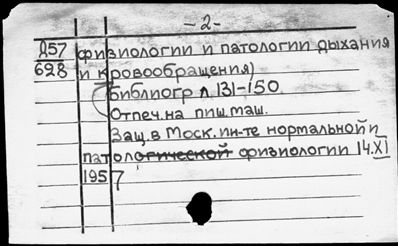 - 2 -
Д57 физиологии и патологии дыхания
628 и кровообращения)
Библиогр л. 131-150.
Отпеч. на пиш. маш.
Защ. в Моск. ин-те нормальной и
патологической физиологии 14.XI
1957